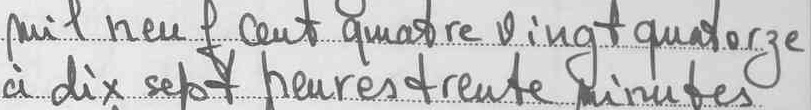 mil neuf cent quatre vingt quatorze
à dix sept heures trente minutes